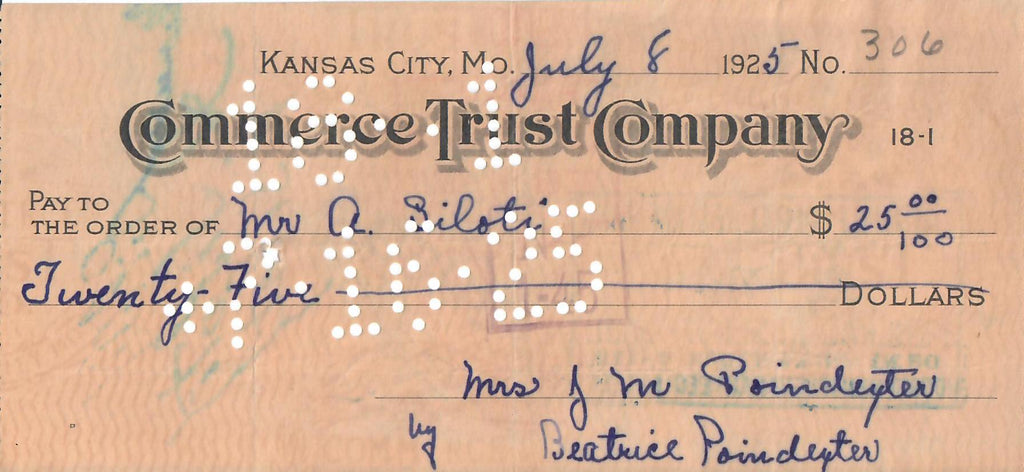 KANSAS CITY, MO. July 8 1925 NO. 306
Commerce Trust Company 18-1
PAY TO
THE ORDER OF Mr A. Siloti $ 25 00/100
Twenty-Five DOLLARS
Mrs J M Poindexter
by Beatrice Poindexter